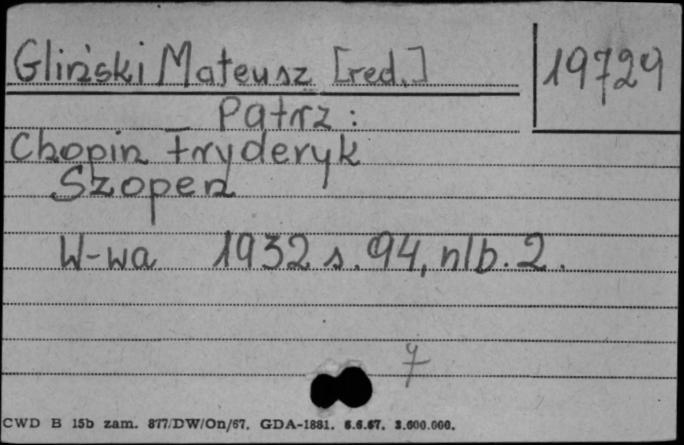 Gliński Mateusz [red.]
19729
Patrz:
Chopin Fryderyk
Szopen
W-wa 1932 s. 94, nlb. 2.
CWD B 15b zam. 877/DW/On/67. GDA-1881. 6.6.67. 3.600.000.